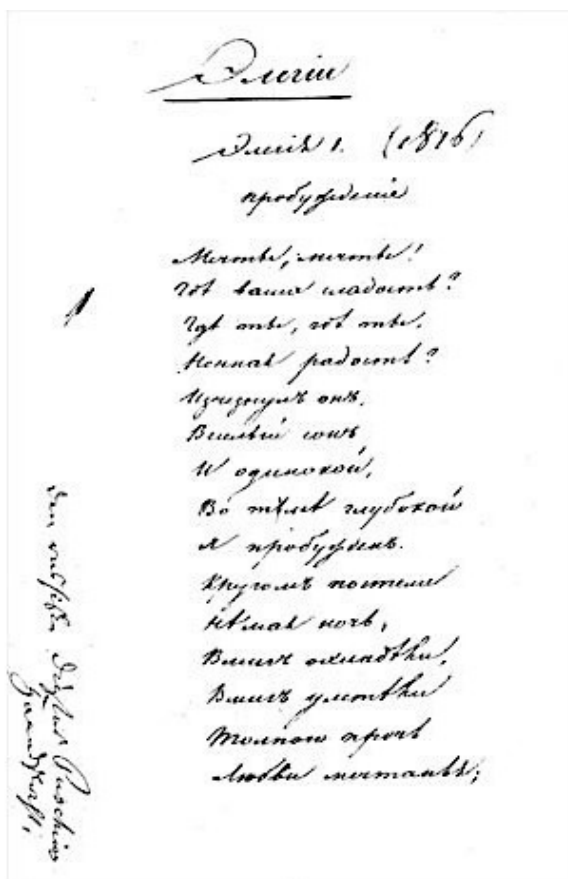 Элегіи
Элегія 1. (1816)
пробужденіе
Мечты, мечты!
Гдѣ ваша сладость?
Гдѣ ты, гдѣ ты,
Ночная радость?
Изчезнулъ онъ,
Веселый сонъ,
И одинокой,
Во тьмѣ глубокой
Я пробужденъ.
Кругомъ постели
Нѣмая ночь,
Вмигъ охладѣли,
Вмигъ улетѣли
Толпою прочь
Любви мечтанья;
Puschkins
Handschrift.